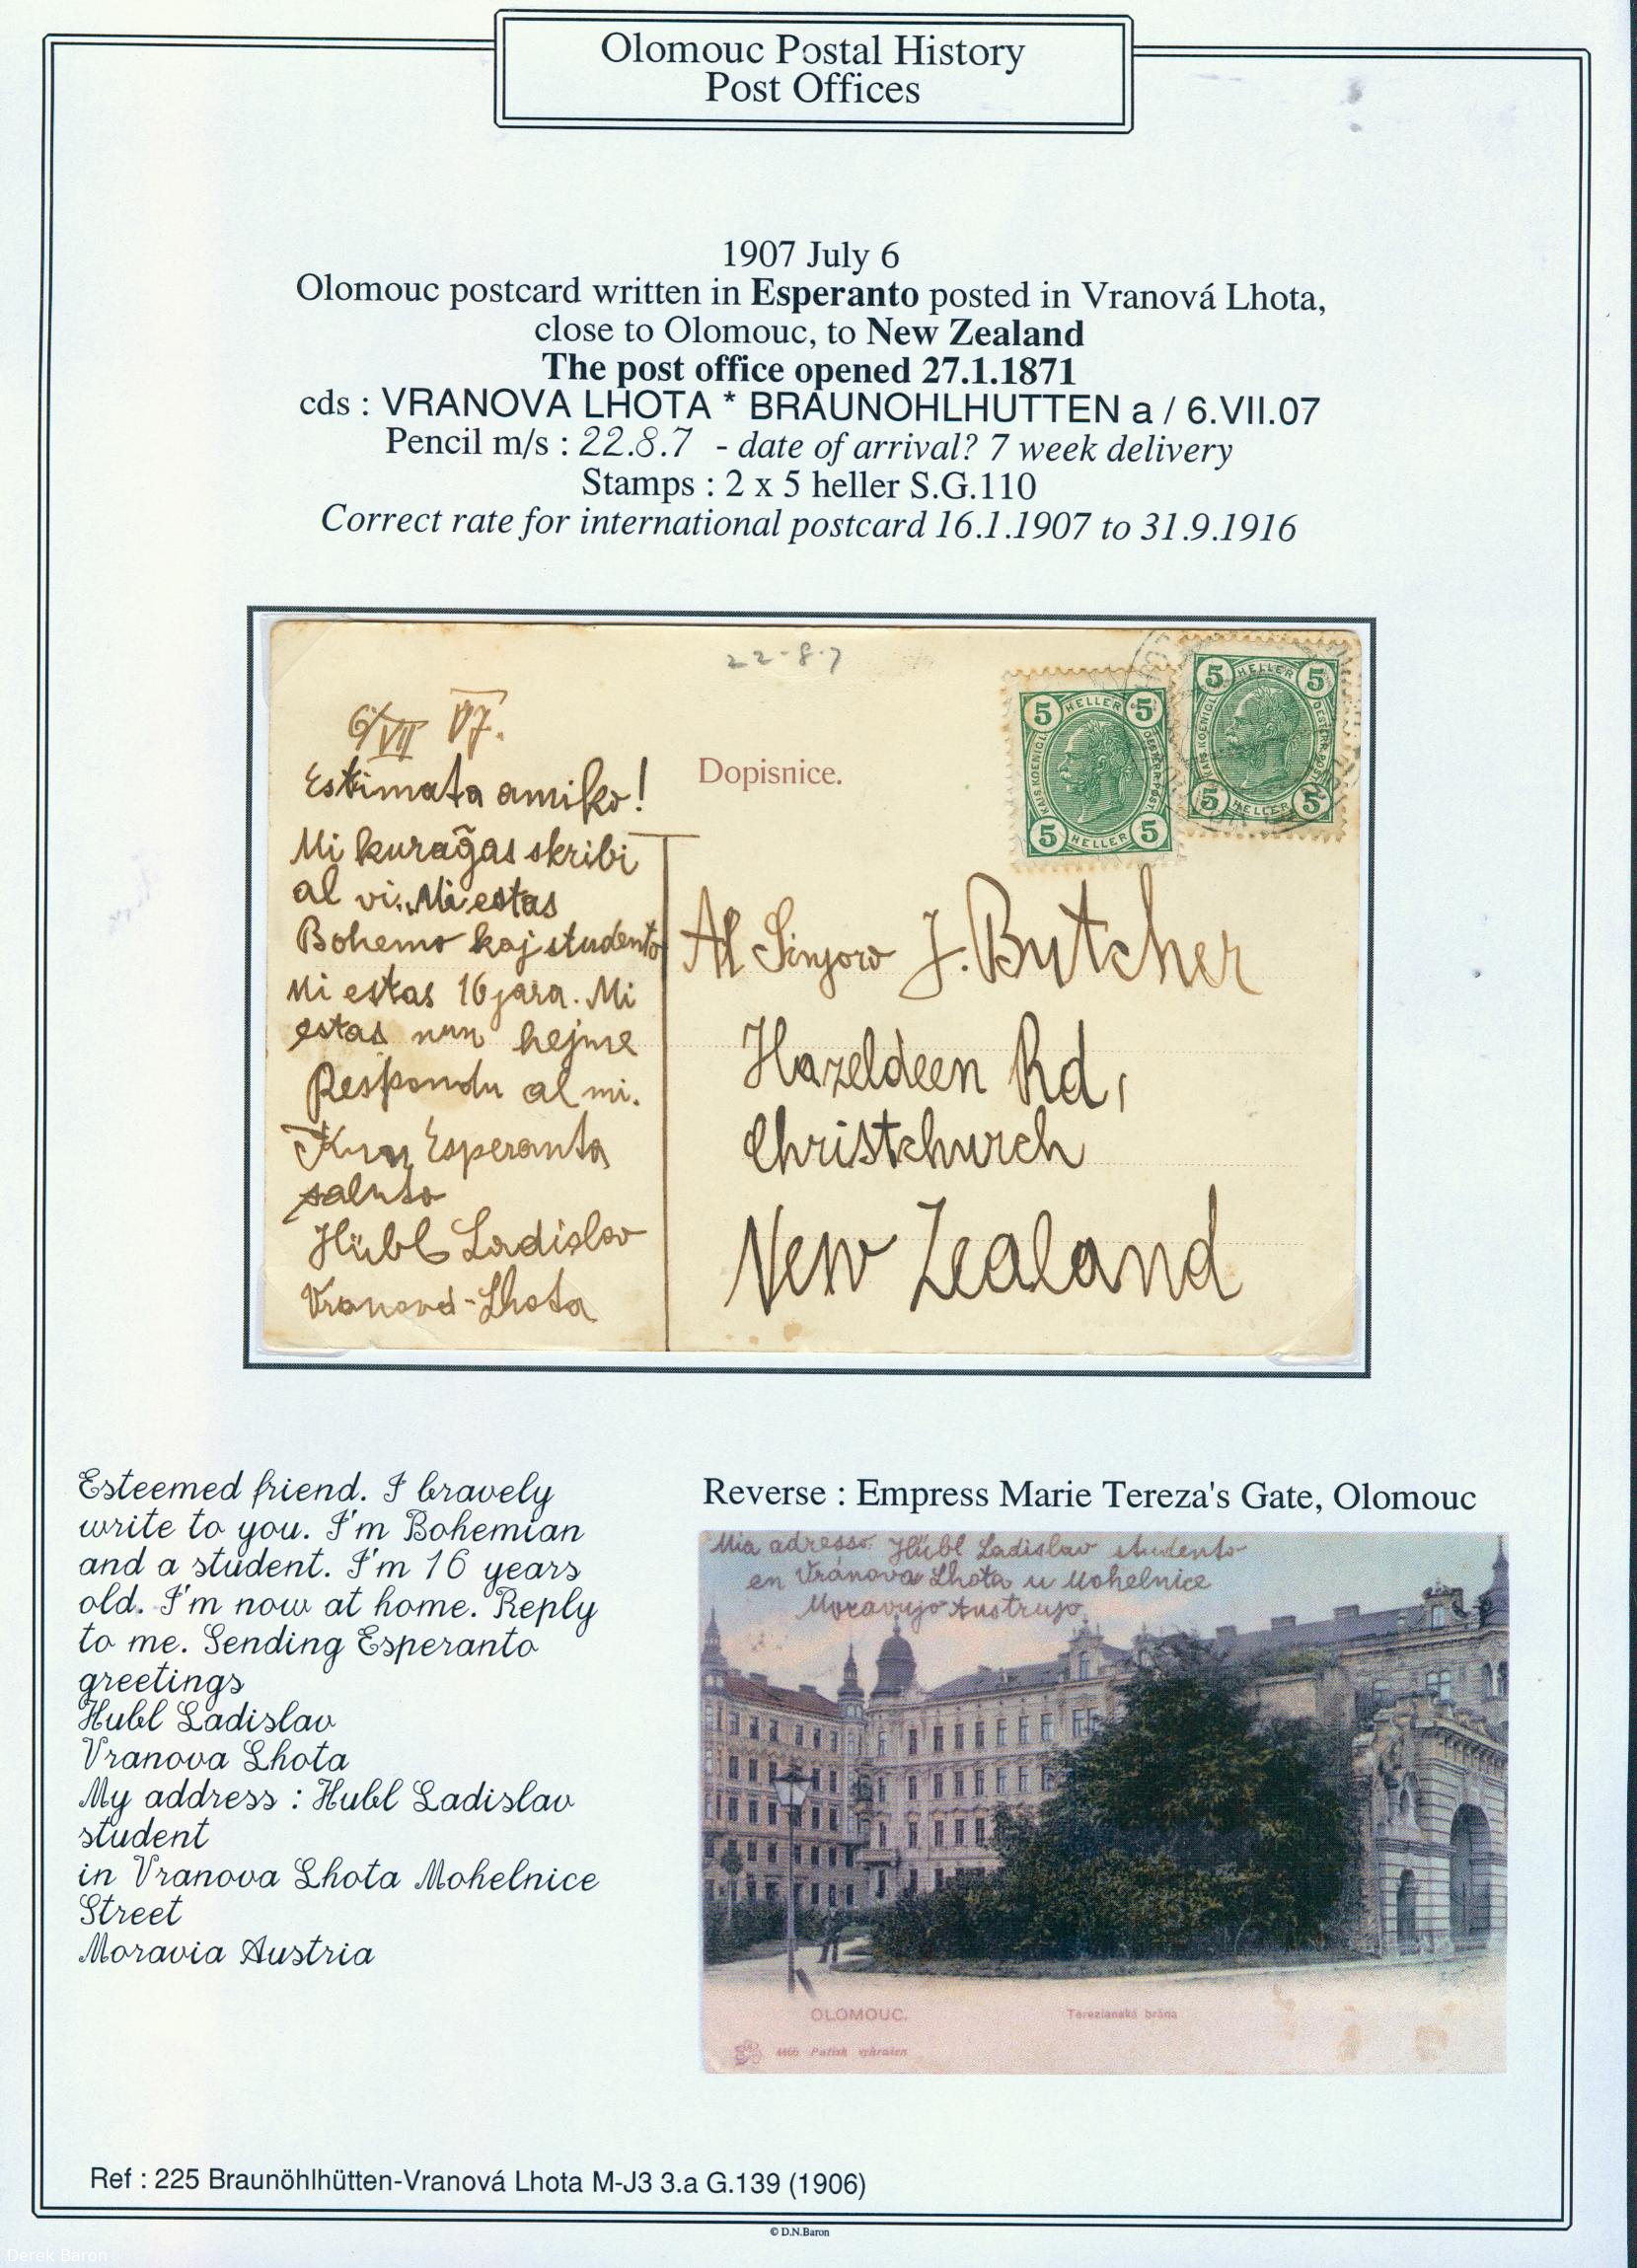 Olomouc Postal History
Post Offices
1907 July 6
Olomouc postcard written in Esperanto posted in Vranová Lhota,
close to Olomouc, to New Zealand
The post office opened 27.1.1871
cds : VRANOVA LHOTA * BRAUNOHLHUTTEN a / 6.VII.07
Pencil m/s : 22.8.7 - date of arrival? 7 week delivery
Stamps : 2 x 5 heller S.G.110
Correct rate for international postcard 16.1.1907 to 31.9.1916
22-8-7
5 HELLER 5
5 HELLER 5
5 HELLER 5
5 HELLER 5
6/VII 07.
Dopisnice.
Estimata amiko!
Mi kuraĝas skribi
al vi. Mi estas
Bohemo kaj studento
Mi estas 16 jara. Mi
estas nun hejme
Respondu al mi.
Kun Esperanta
saluto
Hübl Ladislav
Vranová-Lhota
Al Sinjoro J. Butcher
Hazeldeen Rd,
Christchurch
New Zealand
Esteemed friend. I bravely
write to you. I'm Bohemian
and a student. I'm 16 years
old. I'm now at home. Reply
to me. Sending Esperanto
greetings
Hubl Ladislav
Vranova Lhota
My address : Hubl Ladislav
student
in Vranova Lhota Mohelnice
Street
Moravia Austria
Reverse : Empress Marie Tereza's Gate, Olomouc
Mia adreso: Hübl Ladislav studento
en Vránova Lhota u Mohelnice
Moravujo Austrujo
OLOMOUC.
Terezianská brána
4466
Ref : 225 Braunöhlhütten-Vranová Lhota M-J3 3.a G.139 (1906)
© D.N.Baron
Derek Baron